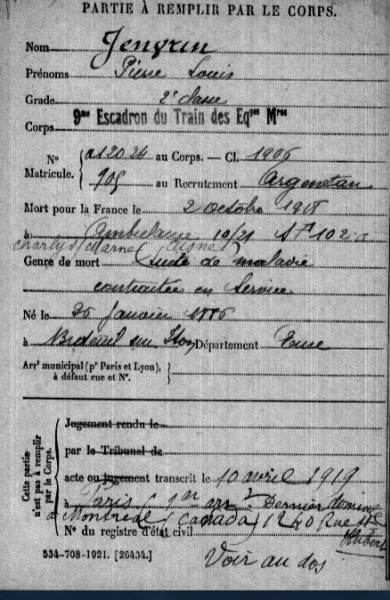 PARTIE À REMPLIR PAR LE CORPS.
Nom Jengrin
Prénoms Pierre Louis
Grade 2e classe
Corps 9me Escadron du Train des Eqges Mres
N° Matricule. a12024 au Corps. — Cl. 1906
905 au Recrutement Argentan
Mort pour la France le 2 octobre 1918
à Ambulance 10/21 SP 102 à
Charly s/ Marne (Aisne)
Genre de mort Suite de maladie
contractée en Service
Né le 26 Janvier 1886
à Breteuil sur Iton Département Eure
Arrt municipal (pr Paris et Lyon),
à défaut rue et N°.
Cette partie n'est pas à remplir par le Corps.
Jugement rendu le
par le Tribunal de
acte ou jugement transcrit le 10 avril 1919
à Paris (1er arrt) Dernier domicile
à Montréal (Canada) 1240 Rue St
Hubert
N° du registre d'état civil
Voir au dos
534-708-1921. [26434.]